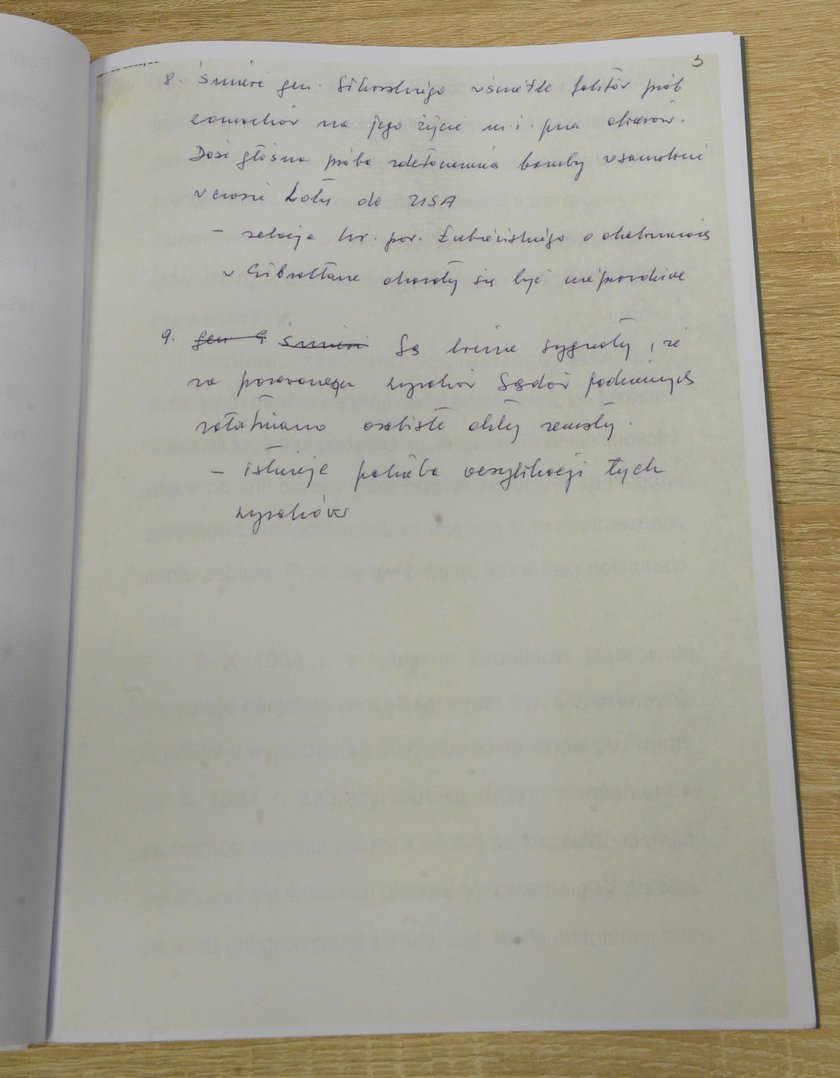 5
8. Śmierć gen. Sikorskiego w świetle faktów prób
zamachów na jego życie m.i. przez
Dość głośna próba zdetonowania bomby w samolocie
w czasie lotu do USA
– relacja hr. por. Łubieńskiego o
w Gibraltarze okazały się być nieprawdziwe
9. gen Śmierć Są liczne sygnały, że
na podstawie wyroków Sądów podziemnych
załatwiano osobiste akty zemsty.
– istnieje potrzeba weryfikacji tych
wyroków